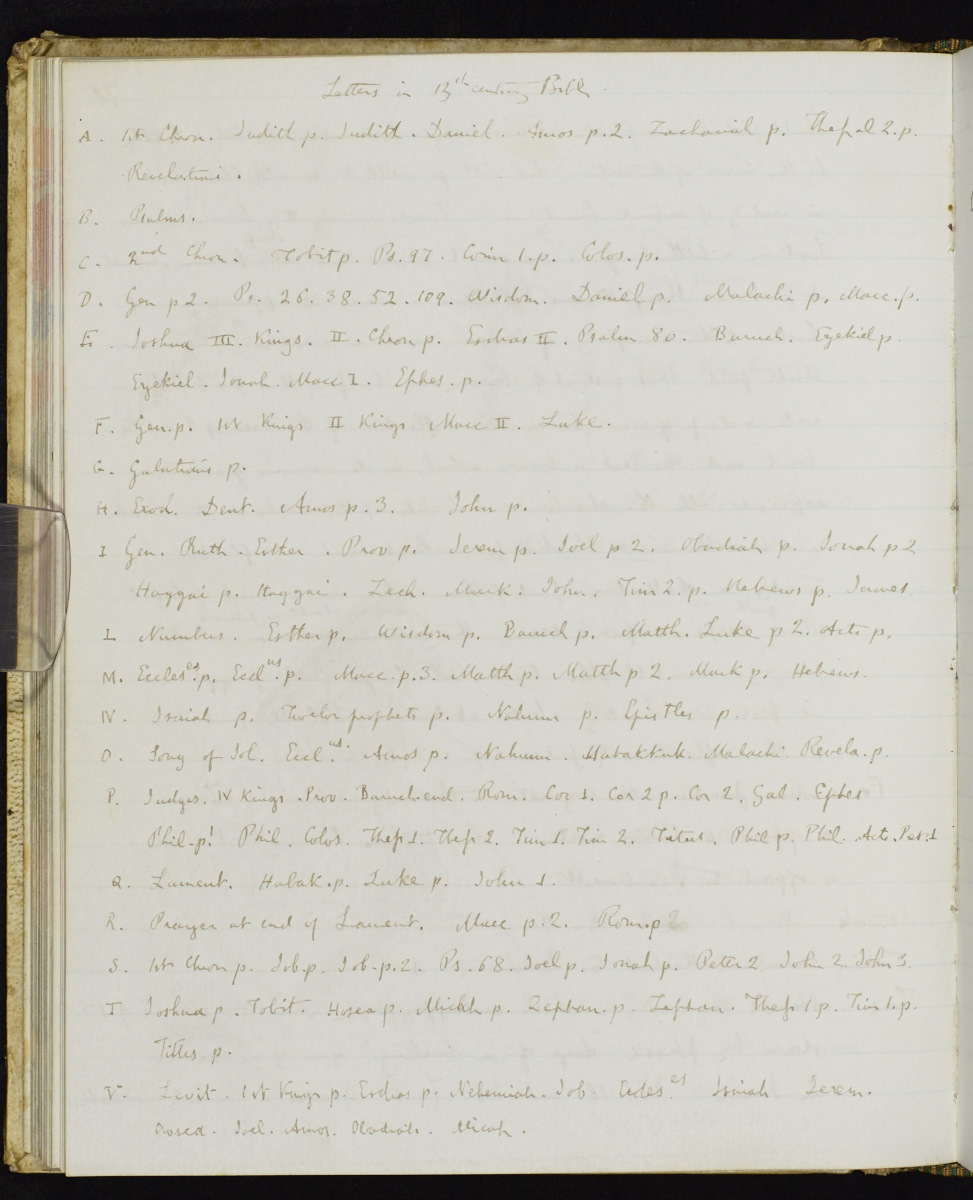 Letters in 13th century Bible.
A. 1st Chron. Judith p. Judith. Daniel. Amos p.2. Zachariah p. Thessal 2. p.
Revelations.
B. Psalms.
C. 2nd Chron. Tobit p. Ps. 97. Corin 1. p. Colos. p.
D. Gen p 2. Ps. 26. 38. 52. 109. Wisdom. Daniel p. Malachi p. Macc. p.
E. Joshua III. Kings. II. Chron p. Esdras II. Psalm 80. Baruch. Ezekiel p.
Ezekiel. Jonah. Macc I. Ephes. p.
F. Gen. p. 1st Kings II Kings Macc II. Luke.
G. Galatians p.
H. Exod. Deut. Amos p. 3. John p.
I Gen. Ruth. Esther. Prov p. Jerem p. Joel p 2. Obadiah p. Jonah p 2
Haggai p. Haggai. Zech. Mark. John. Tim 2. p. Hebrews p. James
L Numbers. Esther p. Wisdom p. Baruch p. Matth. Luke p 2. Acts p.
M. Eccles.es p. Eccl.us p. Macc. p. 3. Matth p. Matth p 2. Mark p. Hebrews.
N. Isaiah p. Twelve prophets p. Nahum p. Epistles p.
O. Song of Sol. Eccl.us Amos p. Nahum. Habakkuk. Malachi. Revela. p.
P. Judges. IV Kings. Prov. Baruch end. Rom. Cor 1. Cor 2 p. Cor 2. Gal. Ephes
Phil. p! Phil. Colos. Thess 1. Thess 2. Tim 1. Tim 2. Titus. Phil p. Phil. Acts. Pet. 1
Q. Lament. Habak. p. Luke p. John 1.
R. Prayer at end of Lament. Macc p. 2. Rom. p 2
S. 1st Chron p. Job. p. Job. p. 2. Ps. 68. Joel p. Jonah p. Peter 2 John 2. John 3.
T Joshua p. Tobit. Hosea p. Micah p. Zephan. p. Zephan. Thess 1. p. Tim 1. p.
Titus p.
V. Levit. 1st Kings p. Esdras p. Nehemiah. Job. Eccles.es Isaiah Jerem.
Hosea. Joel. Amos. Obadiah. Micah.